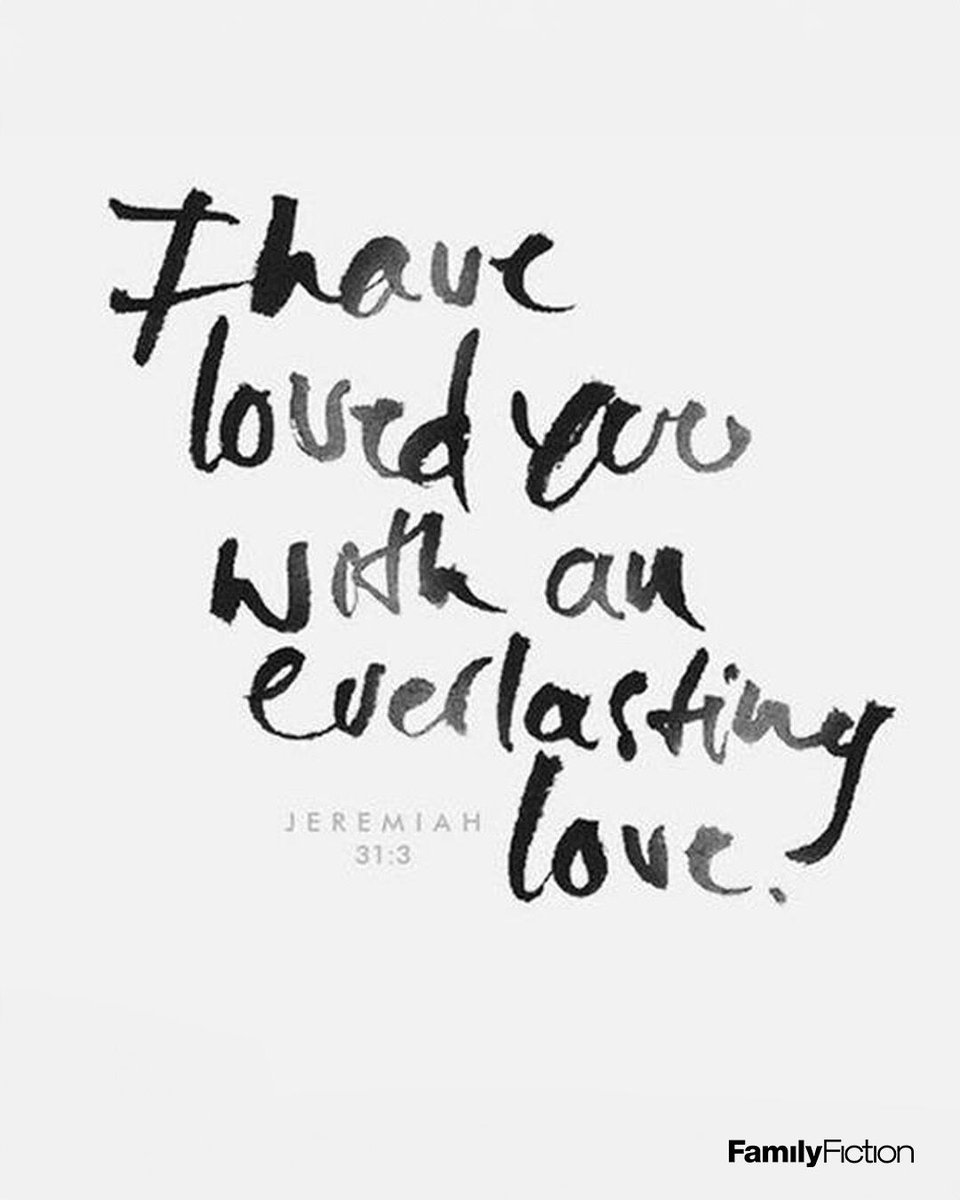 I have
loved you
with an
everlasting
love.
JEREMIAH
31:3
FamilyFiction